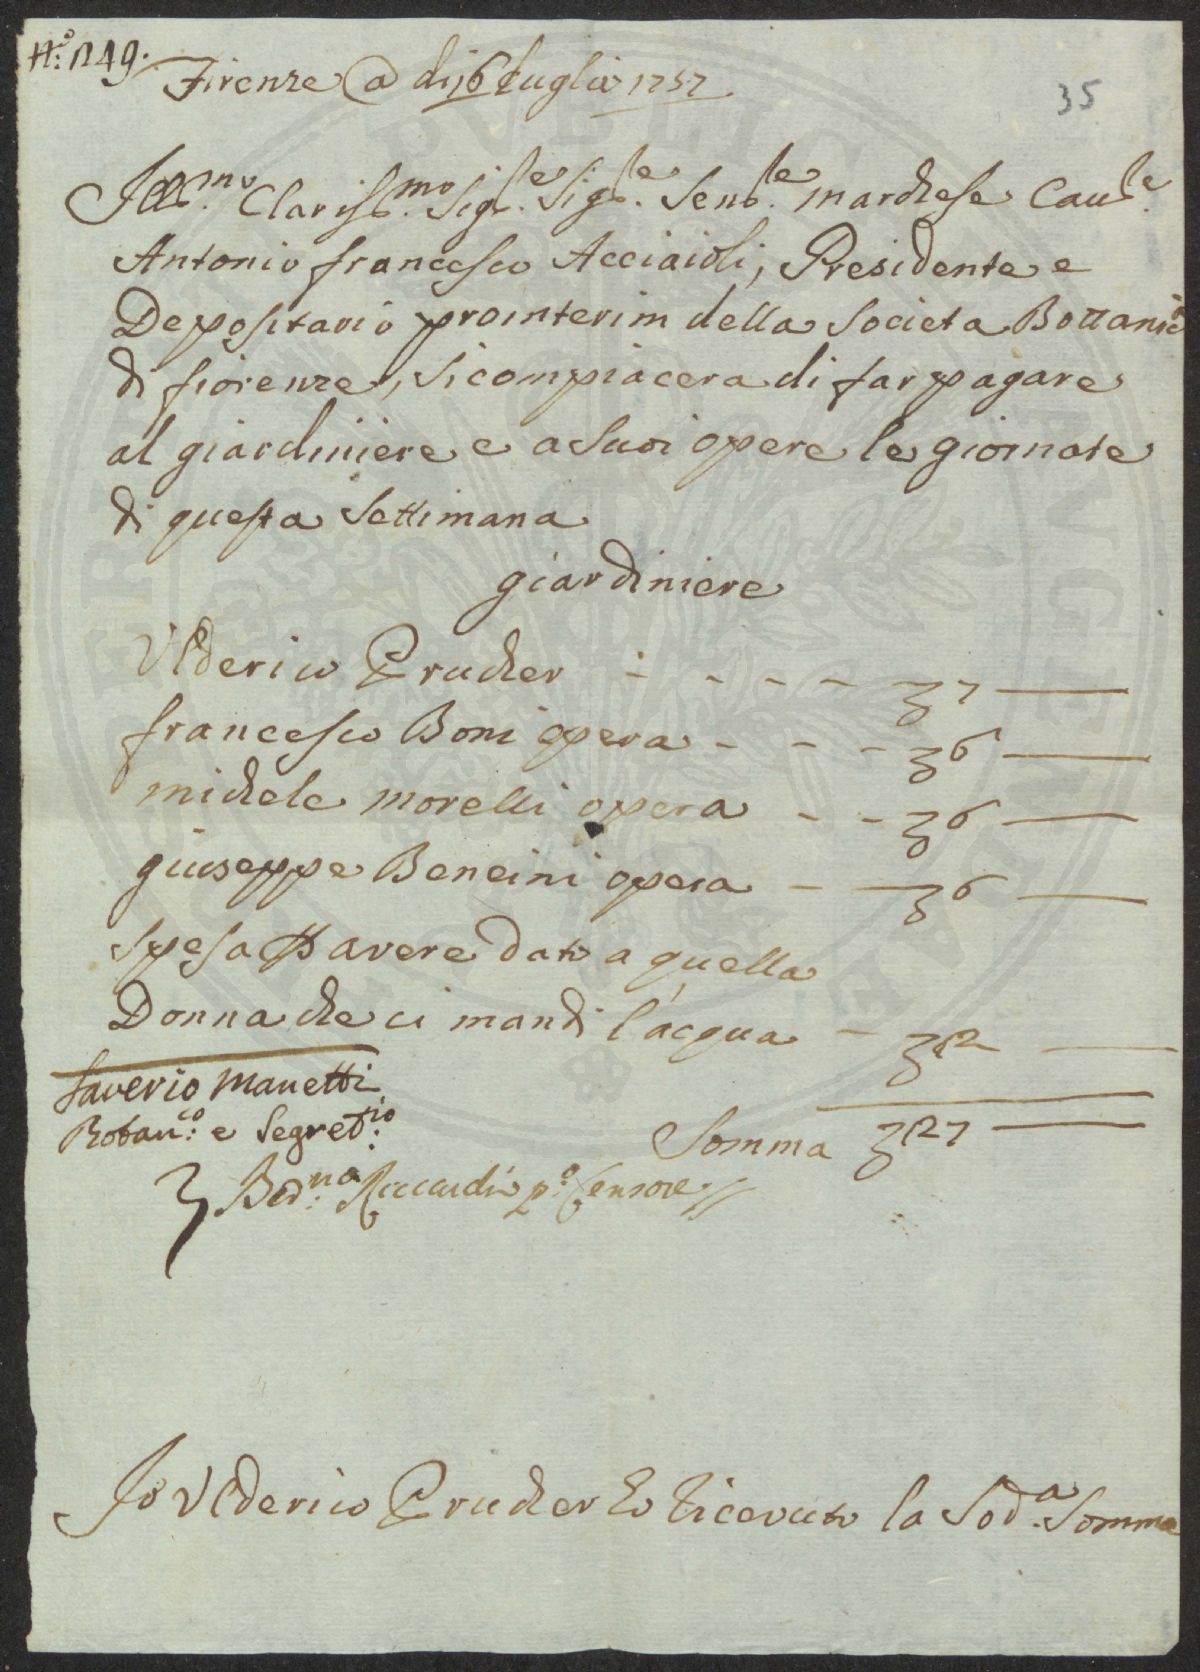 N.° 149.
Firenze @ di 16 Luglio 1757
35
Ill.mo Clariss.mo Sig.re Sig.re Sen.re marchese Cau.re
Antonio francesco Acciaioli, Presidente e
Depositario prointerim della Societa Bottanic.a
di fiorenze, si compiacera di far pagare
al giardiniere e a suoi opere le giornate
di questa Settimana
giardiniere
Vlderico Prucher - - - - - 7 —
francesco Boni opera - - - 6 —
michele morelli opera - - 6 —
giuseppe Bencini opera - — 6 —
spesa p avere dato a quella
Donna che ci mandi l'acqua - 2 —
Saverio Manetti
Botan.co e Segret.rio
Somma 27 —
Bed.na Riccardi p.° Censore
Io Vlderico Prucher ho ricevuto la Sod.a Somma